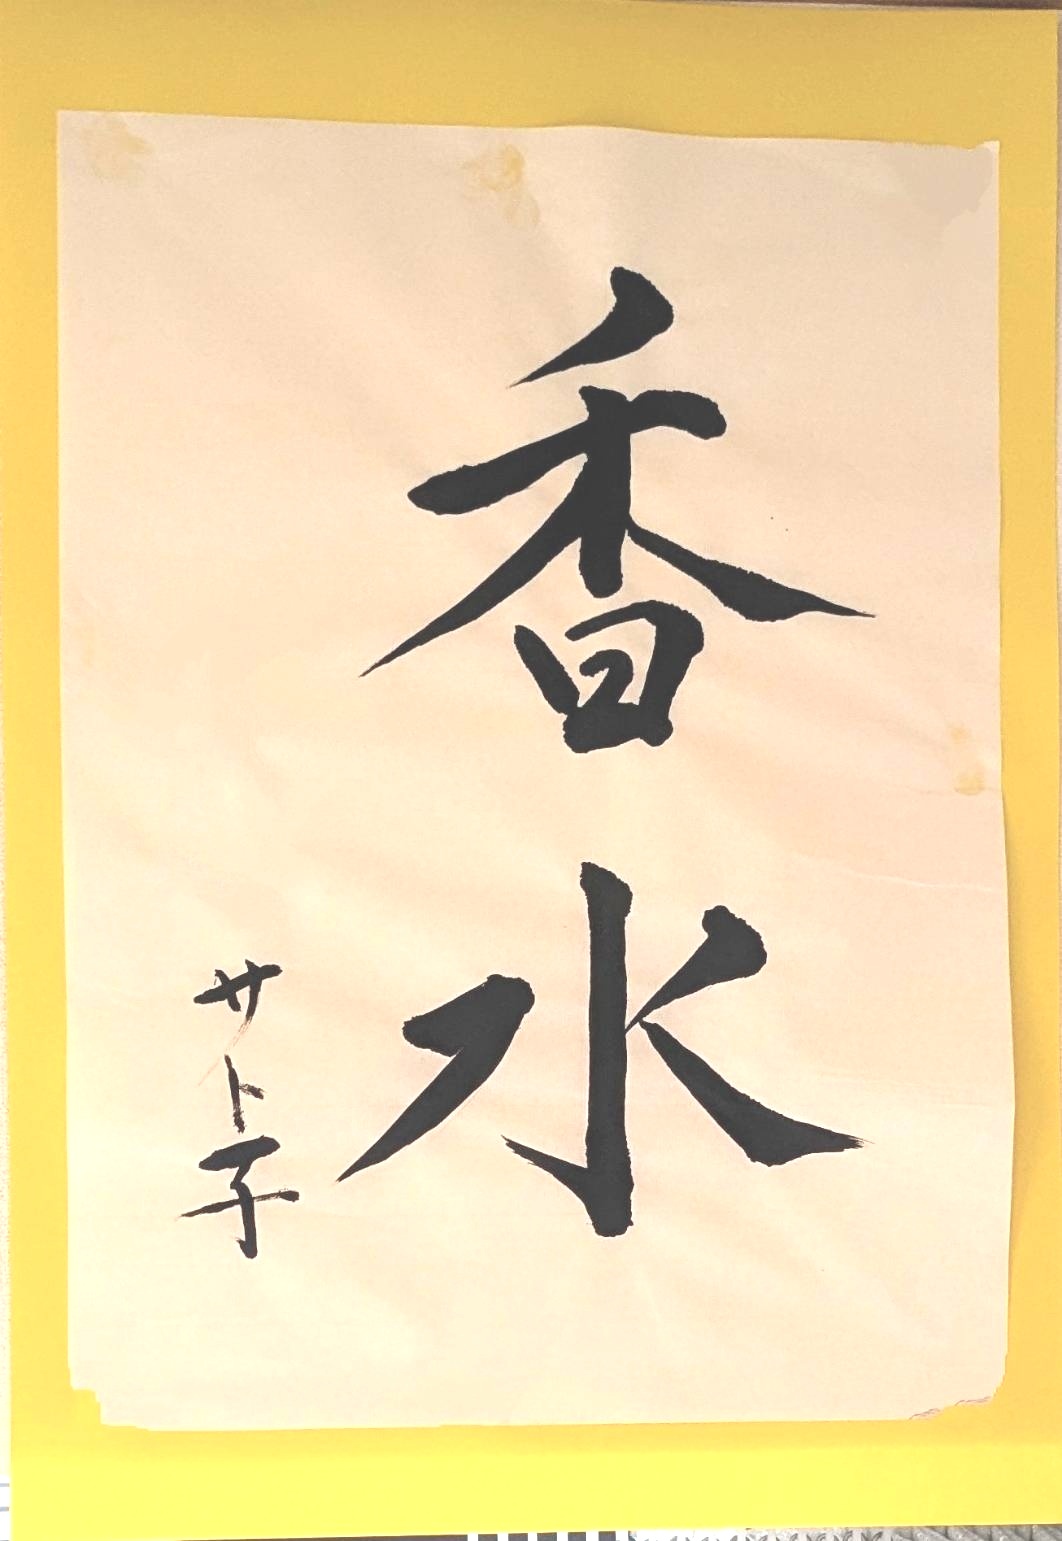 香水
サト子